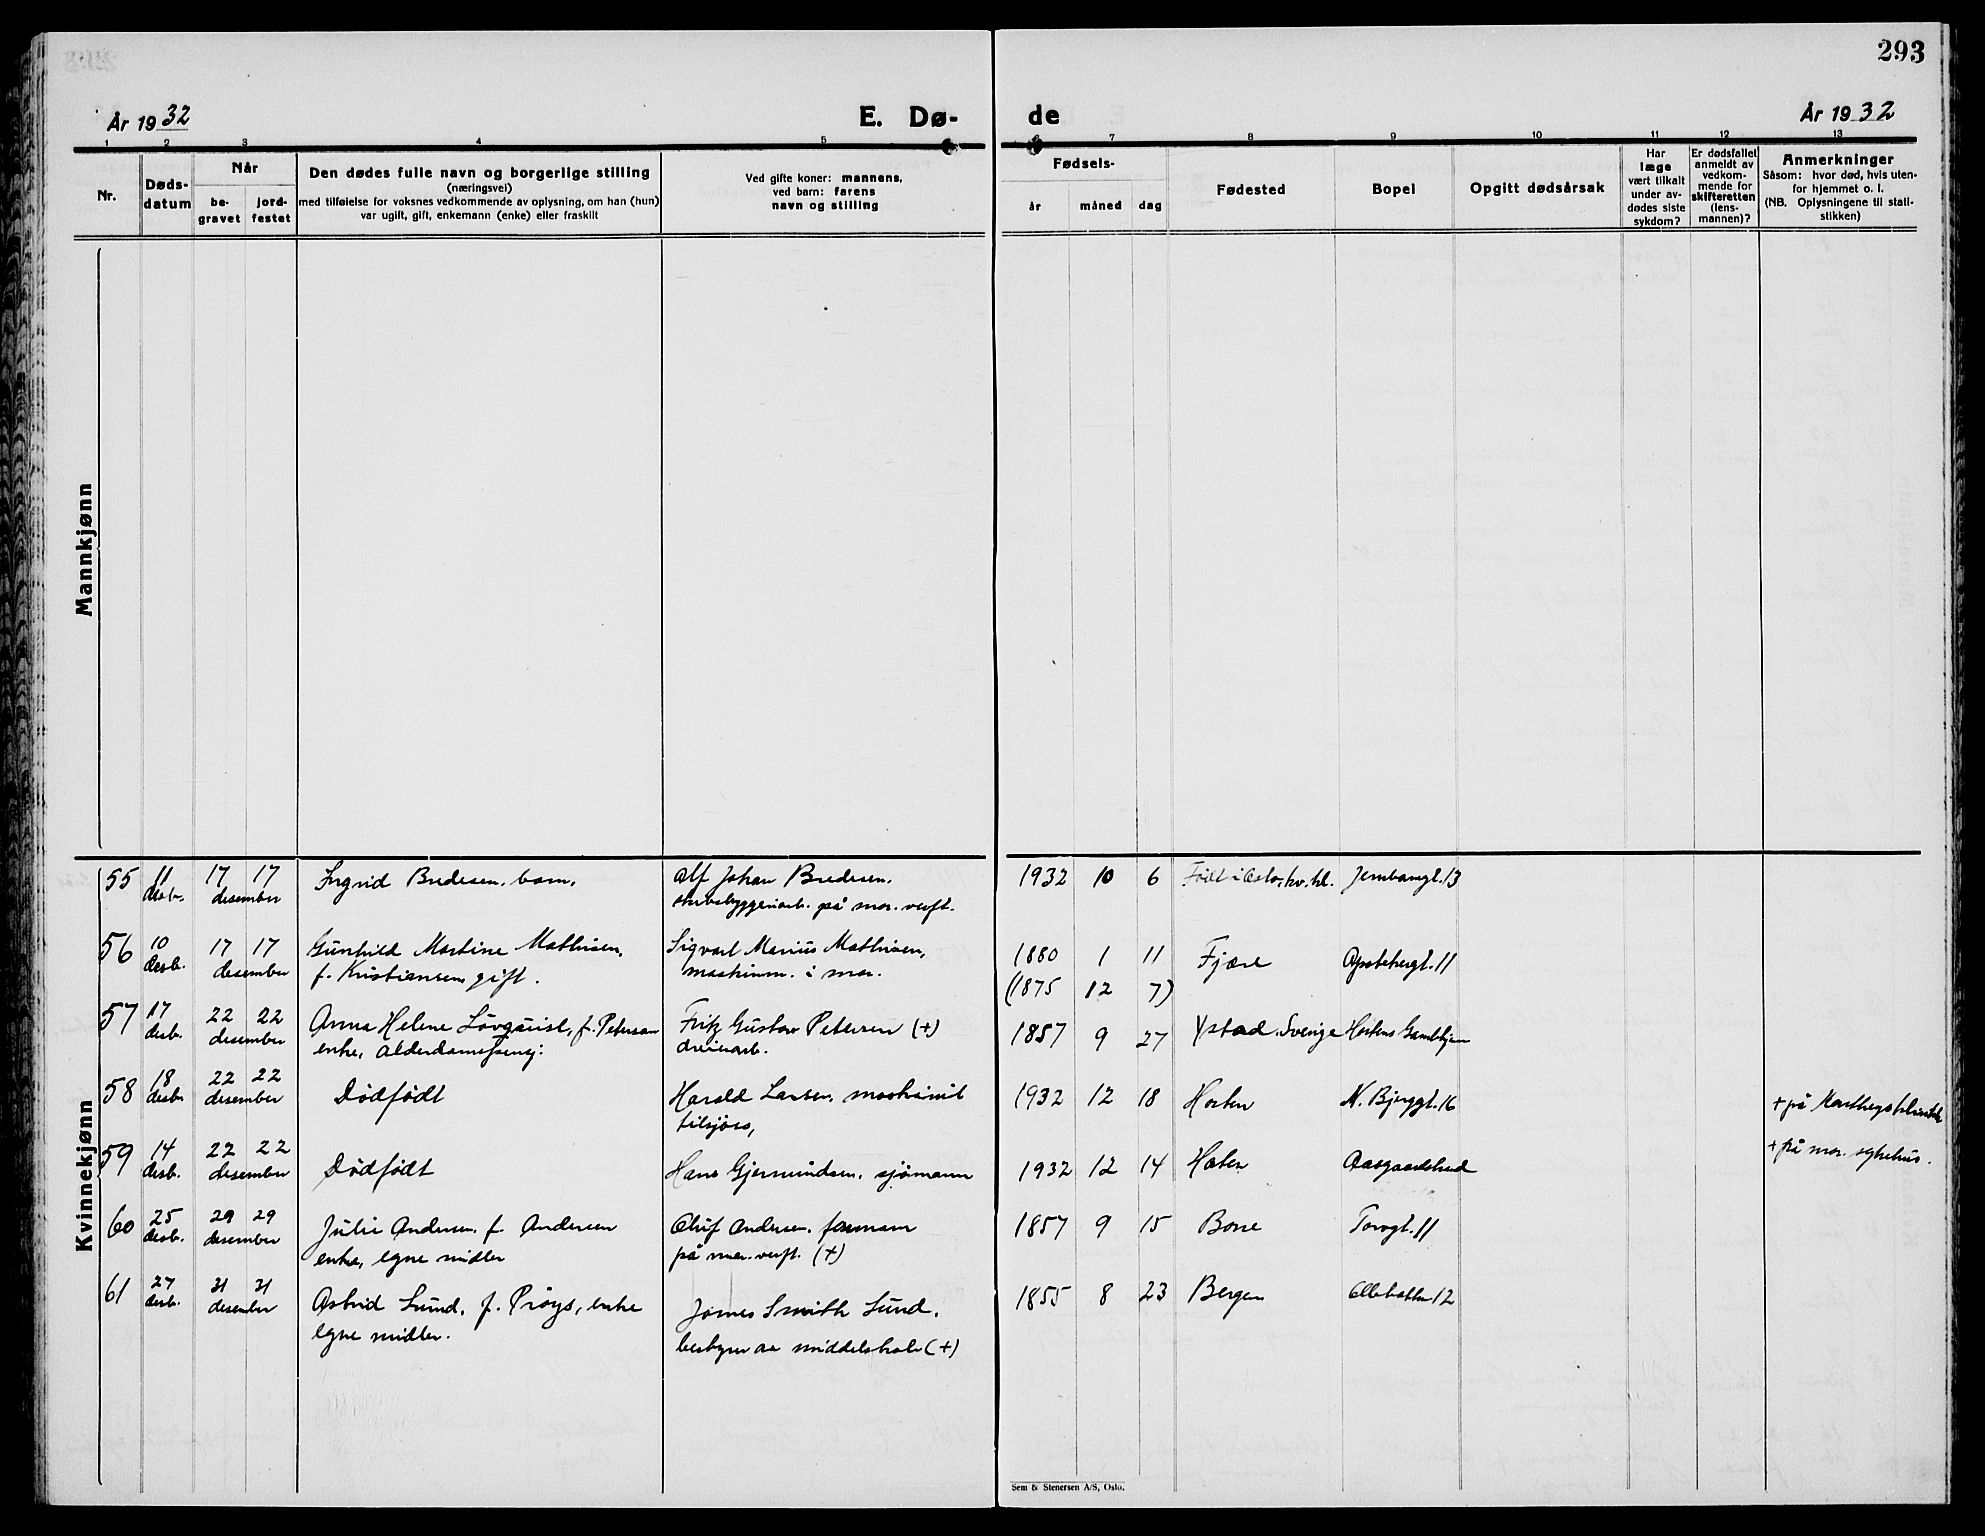 293
År 1932
E. Dø-
de
År 1932
1 2 3 4 5 6 7 8 9 10 11 12 13
Nr.
Døds-
datum
Når
be-
gravet
jord-
festet
Den dødes fulle navn og borgerlige stilling
(næringsvei)
med tilføielse for voksnes vedkommende av oplysning, om han (hun)
var ugift, gift, enkemann (enke) eller fraskilt
Ved gifte koner: mannens,
ved barn: farens
navn og stilling
Fødsels-
år måned dag
Fødested
Bopel
Opgitt dødsårsak
Har
læge
vært tilkalt
under av-
dødes siste
sykdom?
Er dødsfallet
anmeldt av
vedkom-
mende for
skifteretten
(lens-
mannen)?
Anmerkninger
Såsom: hvor død, hvis uten-
for hjemmet o. l.
(NB. Oplysningene til stati-
stikken)
Mannkjønn
Kvinnekjønn
55 11 17 17 Ingrid Bredesen, barn, Alf Johan Bredesen, 1932 10 6 Født i Oslo, kv. kl. Jernbanegt. 13
desb. desember på mar. verft.
56 10 17 17 Gunhild Martine Mathisen, Sigvart Marius Mathisen, 1880 1 11 Fjære Apotekergt. 11
desb. desember f. Kristiansen gift. maskinm. i mar.
(1875 12 7)
57 17 22 22 Anna Helene Lövquist, f. Peterson Fritz Gustav Petersen (+) 1857 9 27 Ystad, Sverige Hortens Gamlehjem
desb. desember enke, dreierarb.
58 18 22 22 Dödfödt Harald Larsen, maskinist 1932 12 18 Horten N. Bjerggt. 16
desb. desember tilsjøss,
59 14 22 22 Dödfödt Hans Gjermundsen, sjömann 1932 12 14 Horten Aasgaardstrand + på mar. sykehus.
desb. desember
60 25 29 29 Julie Andersen, f. Andersen Oluf Andersen, formann 1857 9 15 Borre Torvgt. 11
desb. desember enke, egne midler på mar. verft. (+)
61 27 31 31 Astrid Lund, f. Pröys, enke James Smith Lund, 1855 8 23 Bergen Ollebakken 12
desb. desember egne midler. bestyrer av middelskole (+)
Sem & Stenersen A/S, Oslo.